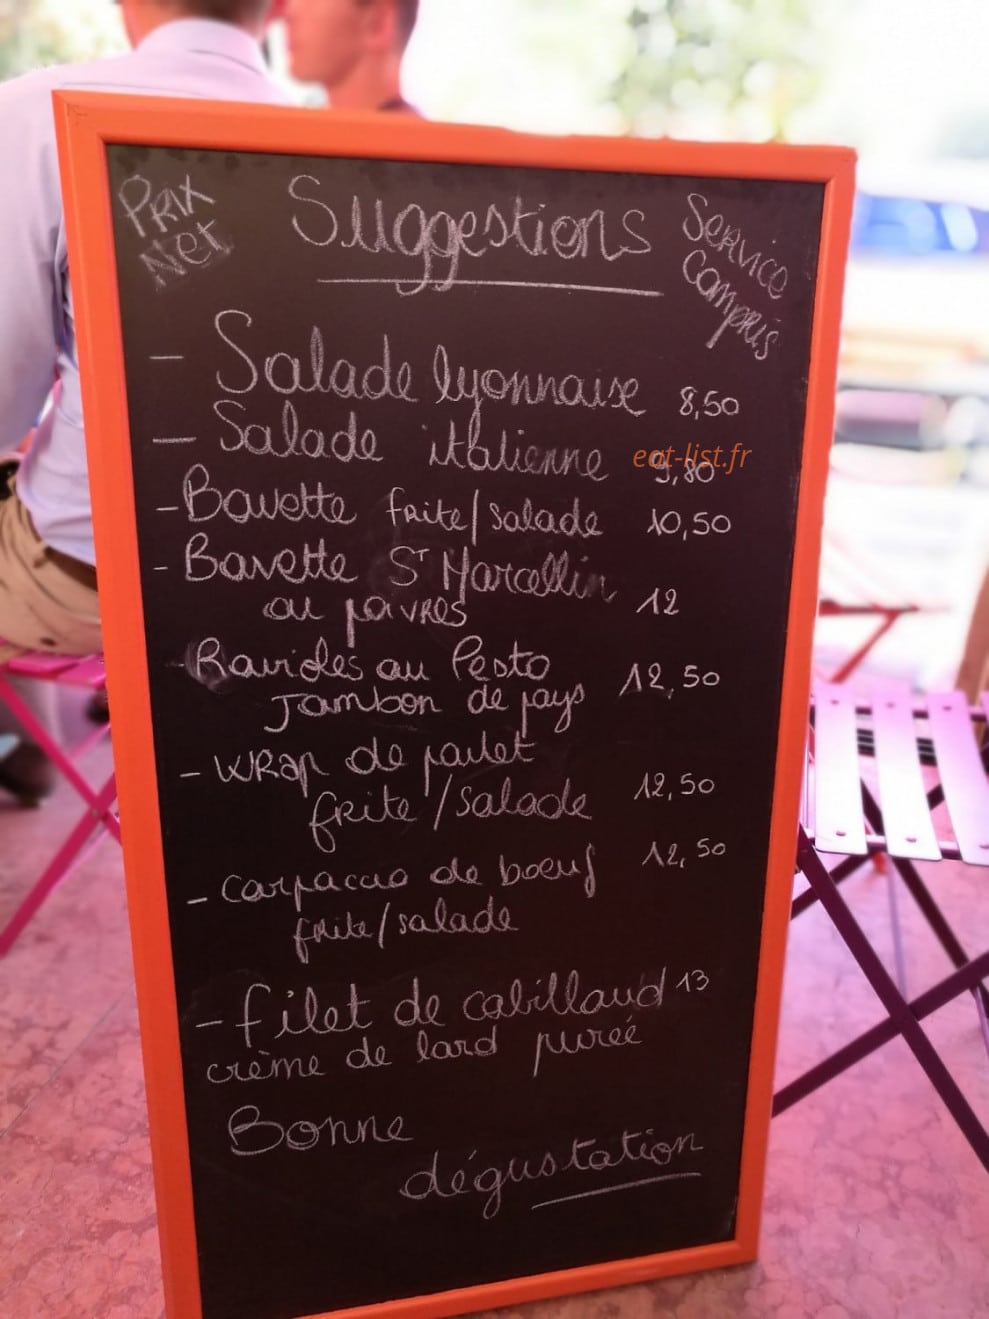 Prix Net
Suggestions
Service Compris
- Salade lyonnaise 8,50
- Salade italienne 9,80
eat-list.fr
- Bavette frite/salade 10,50
- Bavette St Marcellin
ou poivres 12
- Ravioles au Pesto
Jambon de pays 12,50
- Wrap de poulet
frite/salade 12,50
- carpaccio de boeuf 12,50
frite/salade
- filet de cabillaud 13
crème de lard purée
Bonne
dégustation